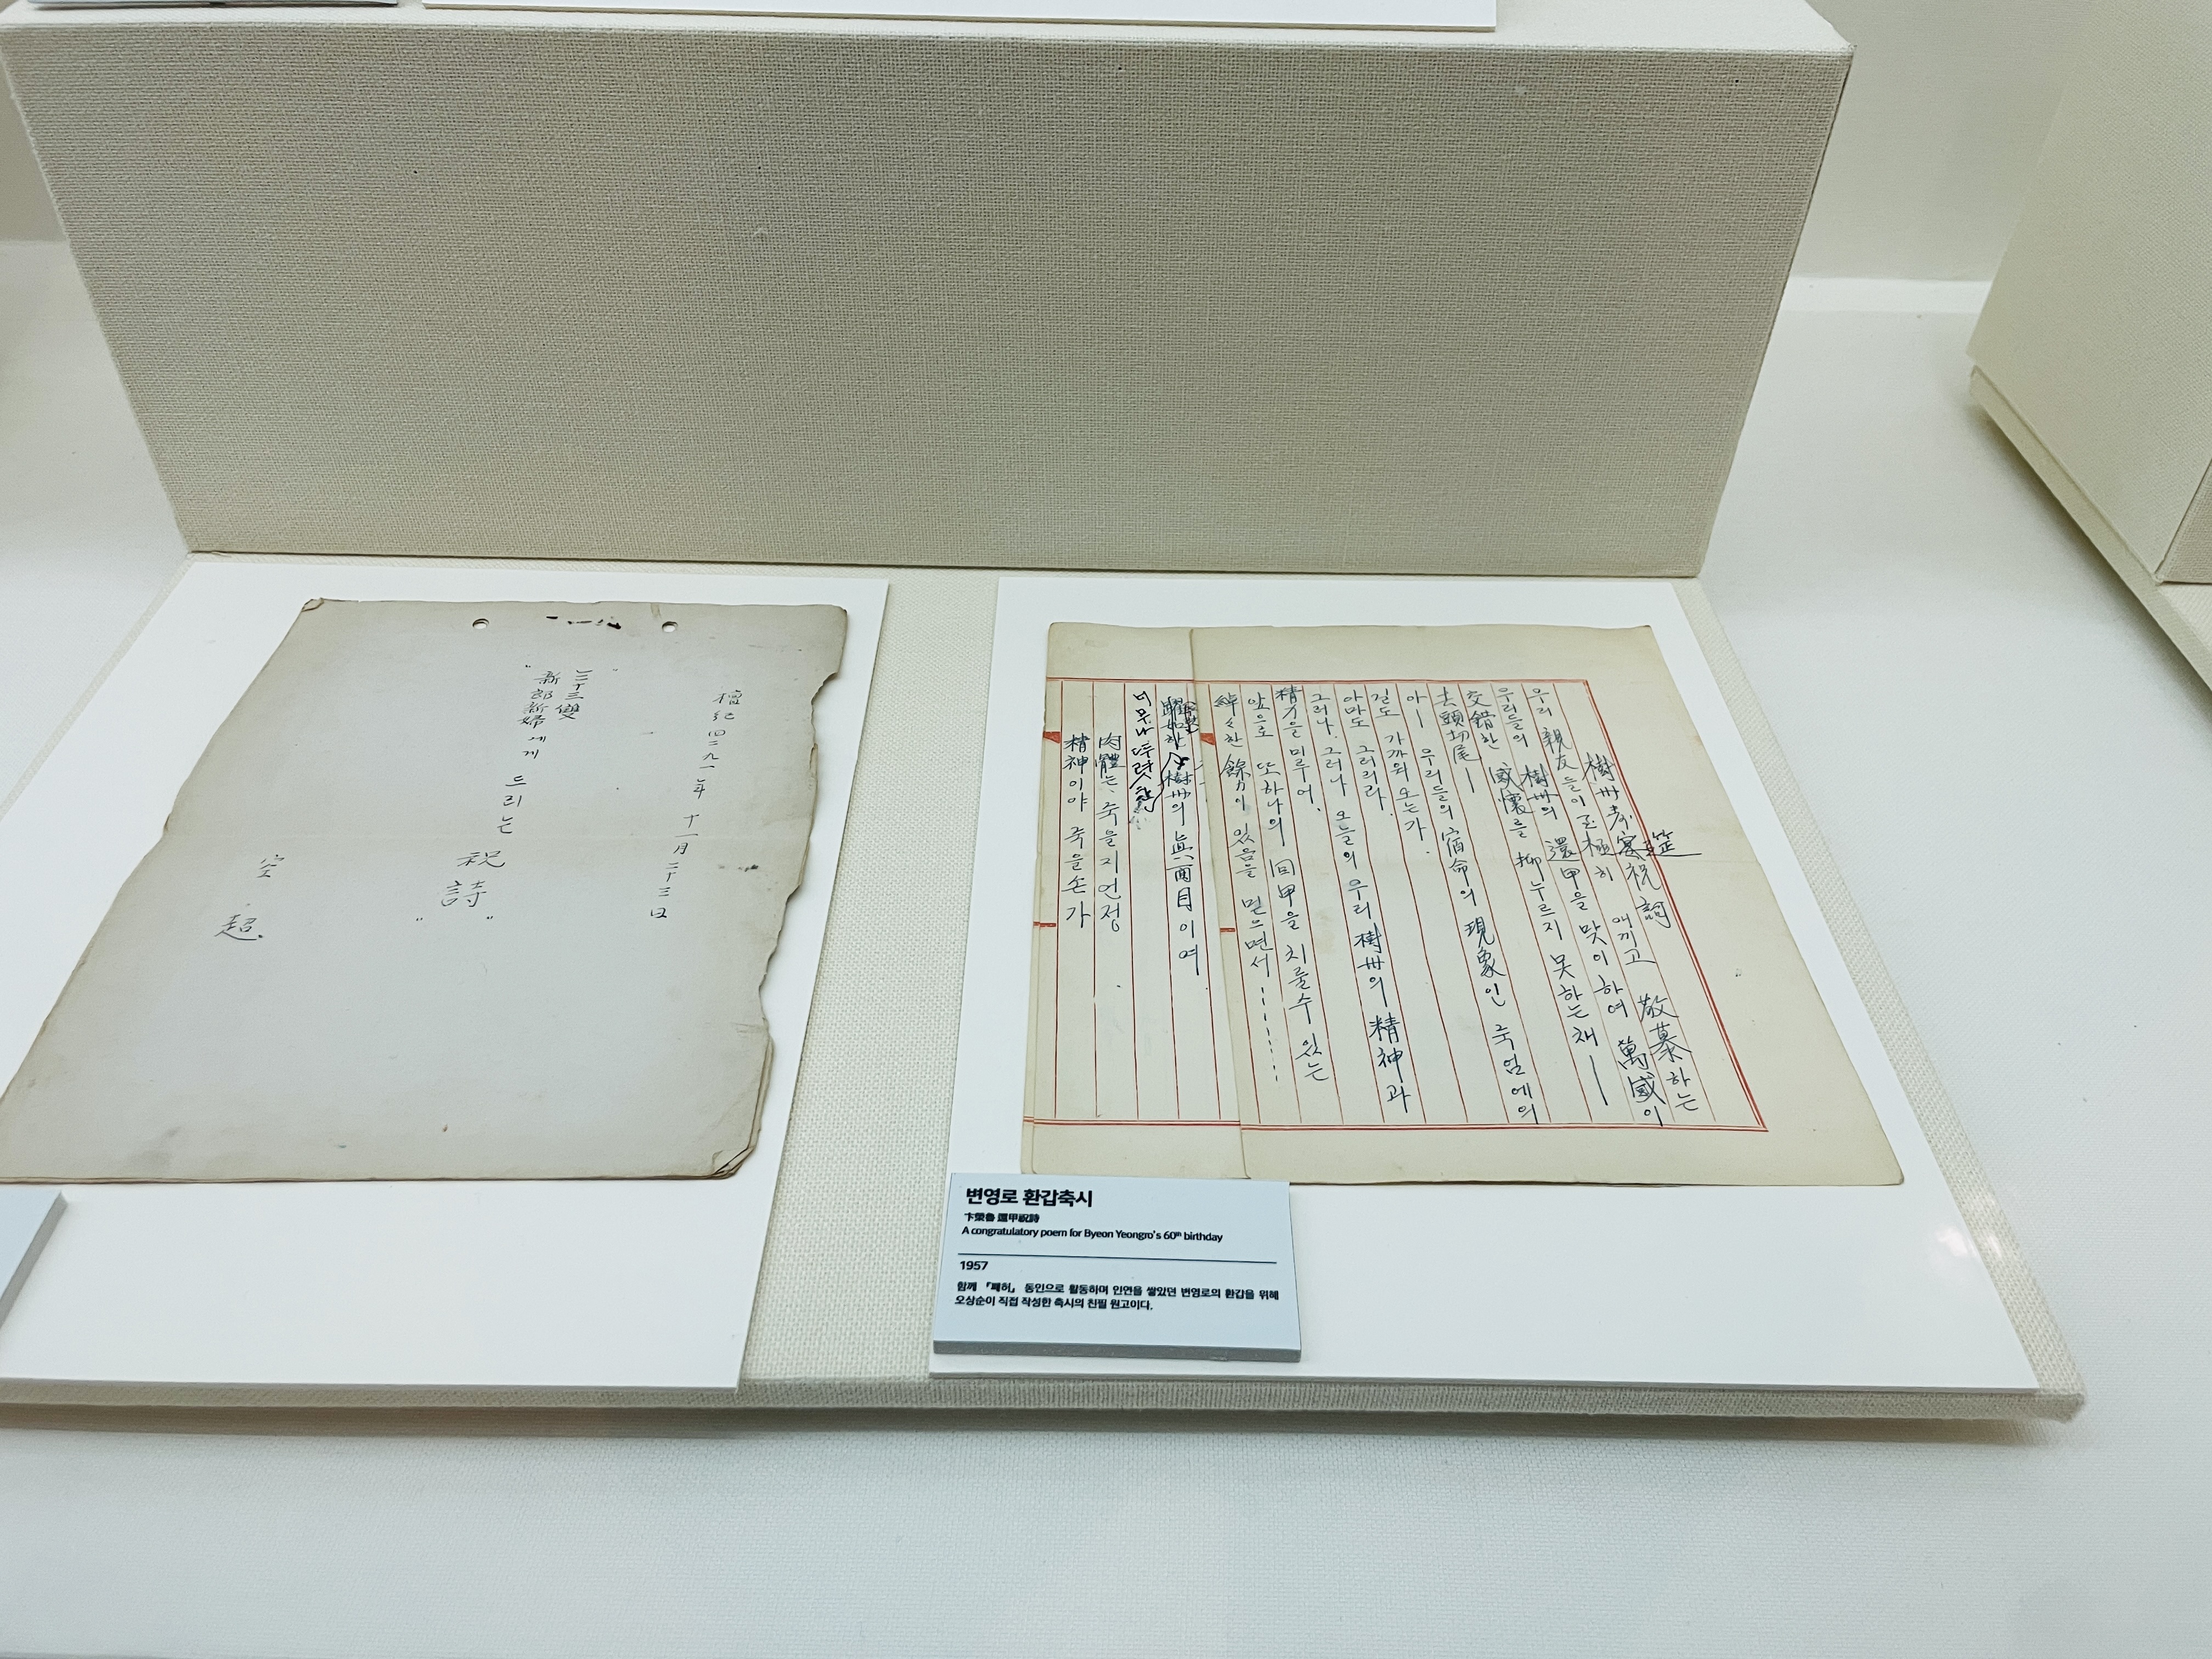 檀紀四二九一年 十一月二十三日
"二十三雙
新郎新婦에게
드리는
祝詩"
空超
樹州 壽宴祝詞
筵
우리 親友들이 至極히 애끼고 敬慕하는
우리들의 樹州의 還甲을 맞이하여 萬感이
交錯한 感懷를 抑누르지 못하는 채—
去頭切尾—
아— 우리들의 宿命의 現象인 죽엄에의
길도 가까워 오는가.
아마도 그러리라.
그러나. 그러나 오늘의 우리 樹州의 精神과
精力을 미루어.
앞으로 또하나의 回甲을 치룰수 있는
綽々한 餘力이 있음을 믿으면서
樹州의 眞面目이여.
너무나 뚜렷한
肉體는 죽을지언정
精神이야 죽을손가
변영로 환갑축시
卞榮魯 還甲祝詩
A congratulatory poem for Byeon Yeongro's 60th birthday
1957
함께 『폐허』 동인으로 활동하며 인연을 쌓았던 변영로의 환갑을 위해
오상순이 직접 작성한 축시의 친필 원고이다.